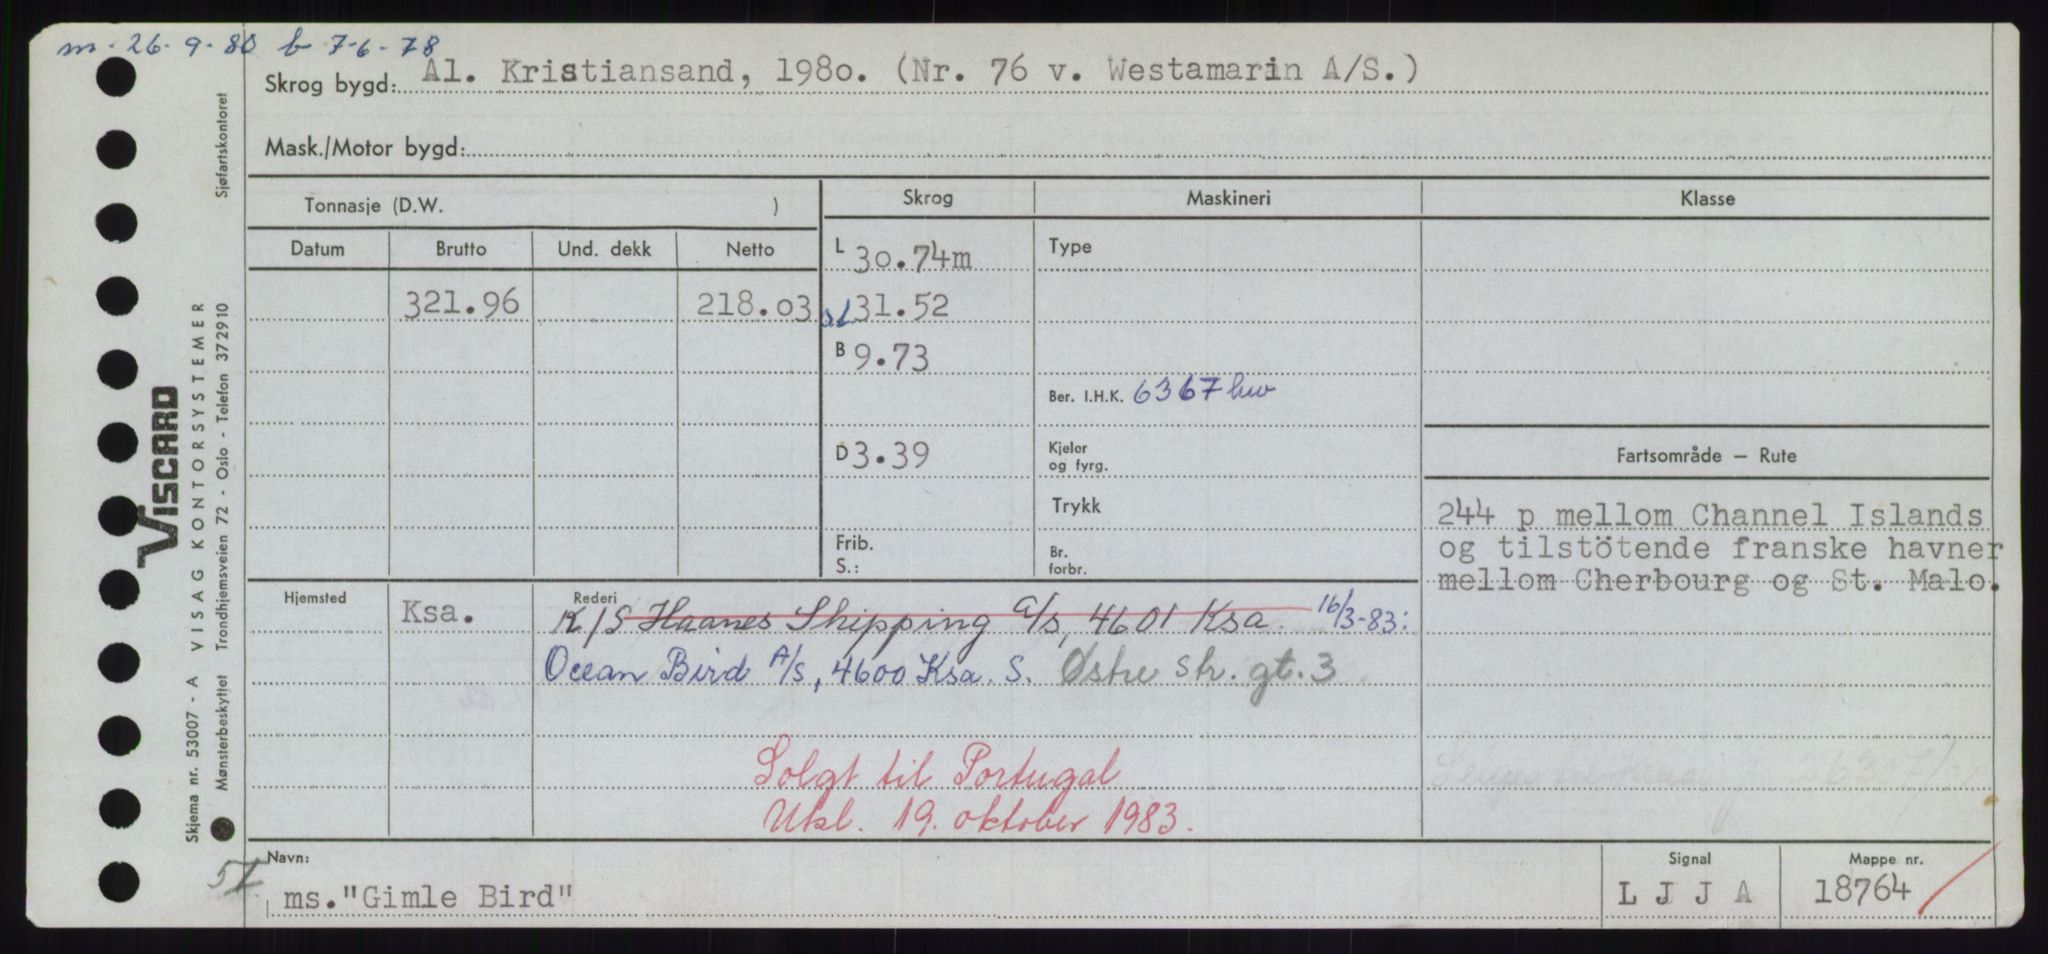 m. 26-9-80 b 7-6-78
Skrog bygd: Al. Kristiansand, 198o. (Nr. 76 v. Westamarin A/S.)
Mask./Motor bygd:
Tonnasje (D.W. )
Skrog
Maskineri
Klasse
Datum Brutto Und. dekk Netto
L 3o.74m
Type
321.96 218.o3
al 31.52
B 9.73
Ber. I.H.K. 6367 kw
D 3.39
Kjeler
og fyrg.
Fartsområde – Rute
Trykk
244 p mellom Channel Islands
og tilstötende franske havner
mellom Cherbourg og St. Malo.
Frib.
S.:
Br.
forbr.
Hjemsted
Ksa.
Rederi
K/S Haanes Shipping A/s, 4601 Ksa. 16/3-83:
Ocean Bird A/s, 4600 Ksa. S. Østre Str. gt. 3
Solgt til Portugal
Utkl. 19. oktober 1983.
Navn:
ms."Gimle Bird"
Signal
L J J A
Mappe nr.
18764
57
Skjema nr. 53007 - A VISAG KONTORSYSTEMER
Mønsterbeskyttet Trondhjemsveien 72 - Oslo - Telefon 372910
Sjøfartskontoret
VISCARD